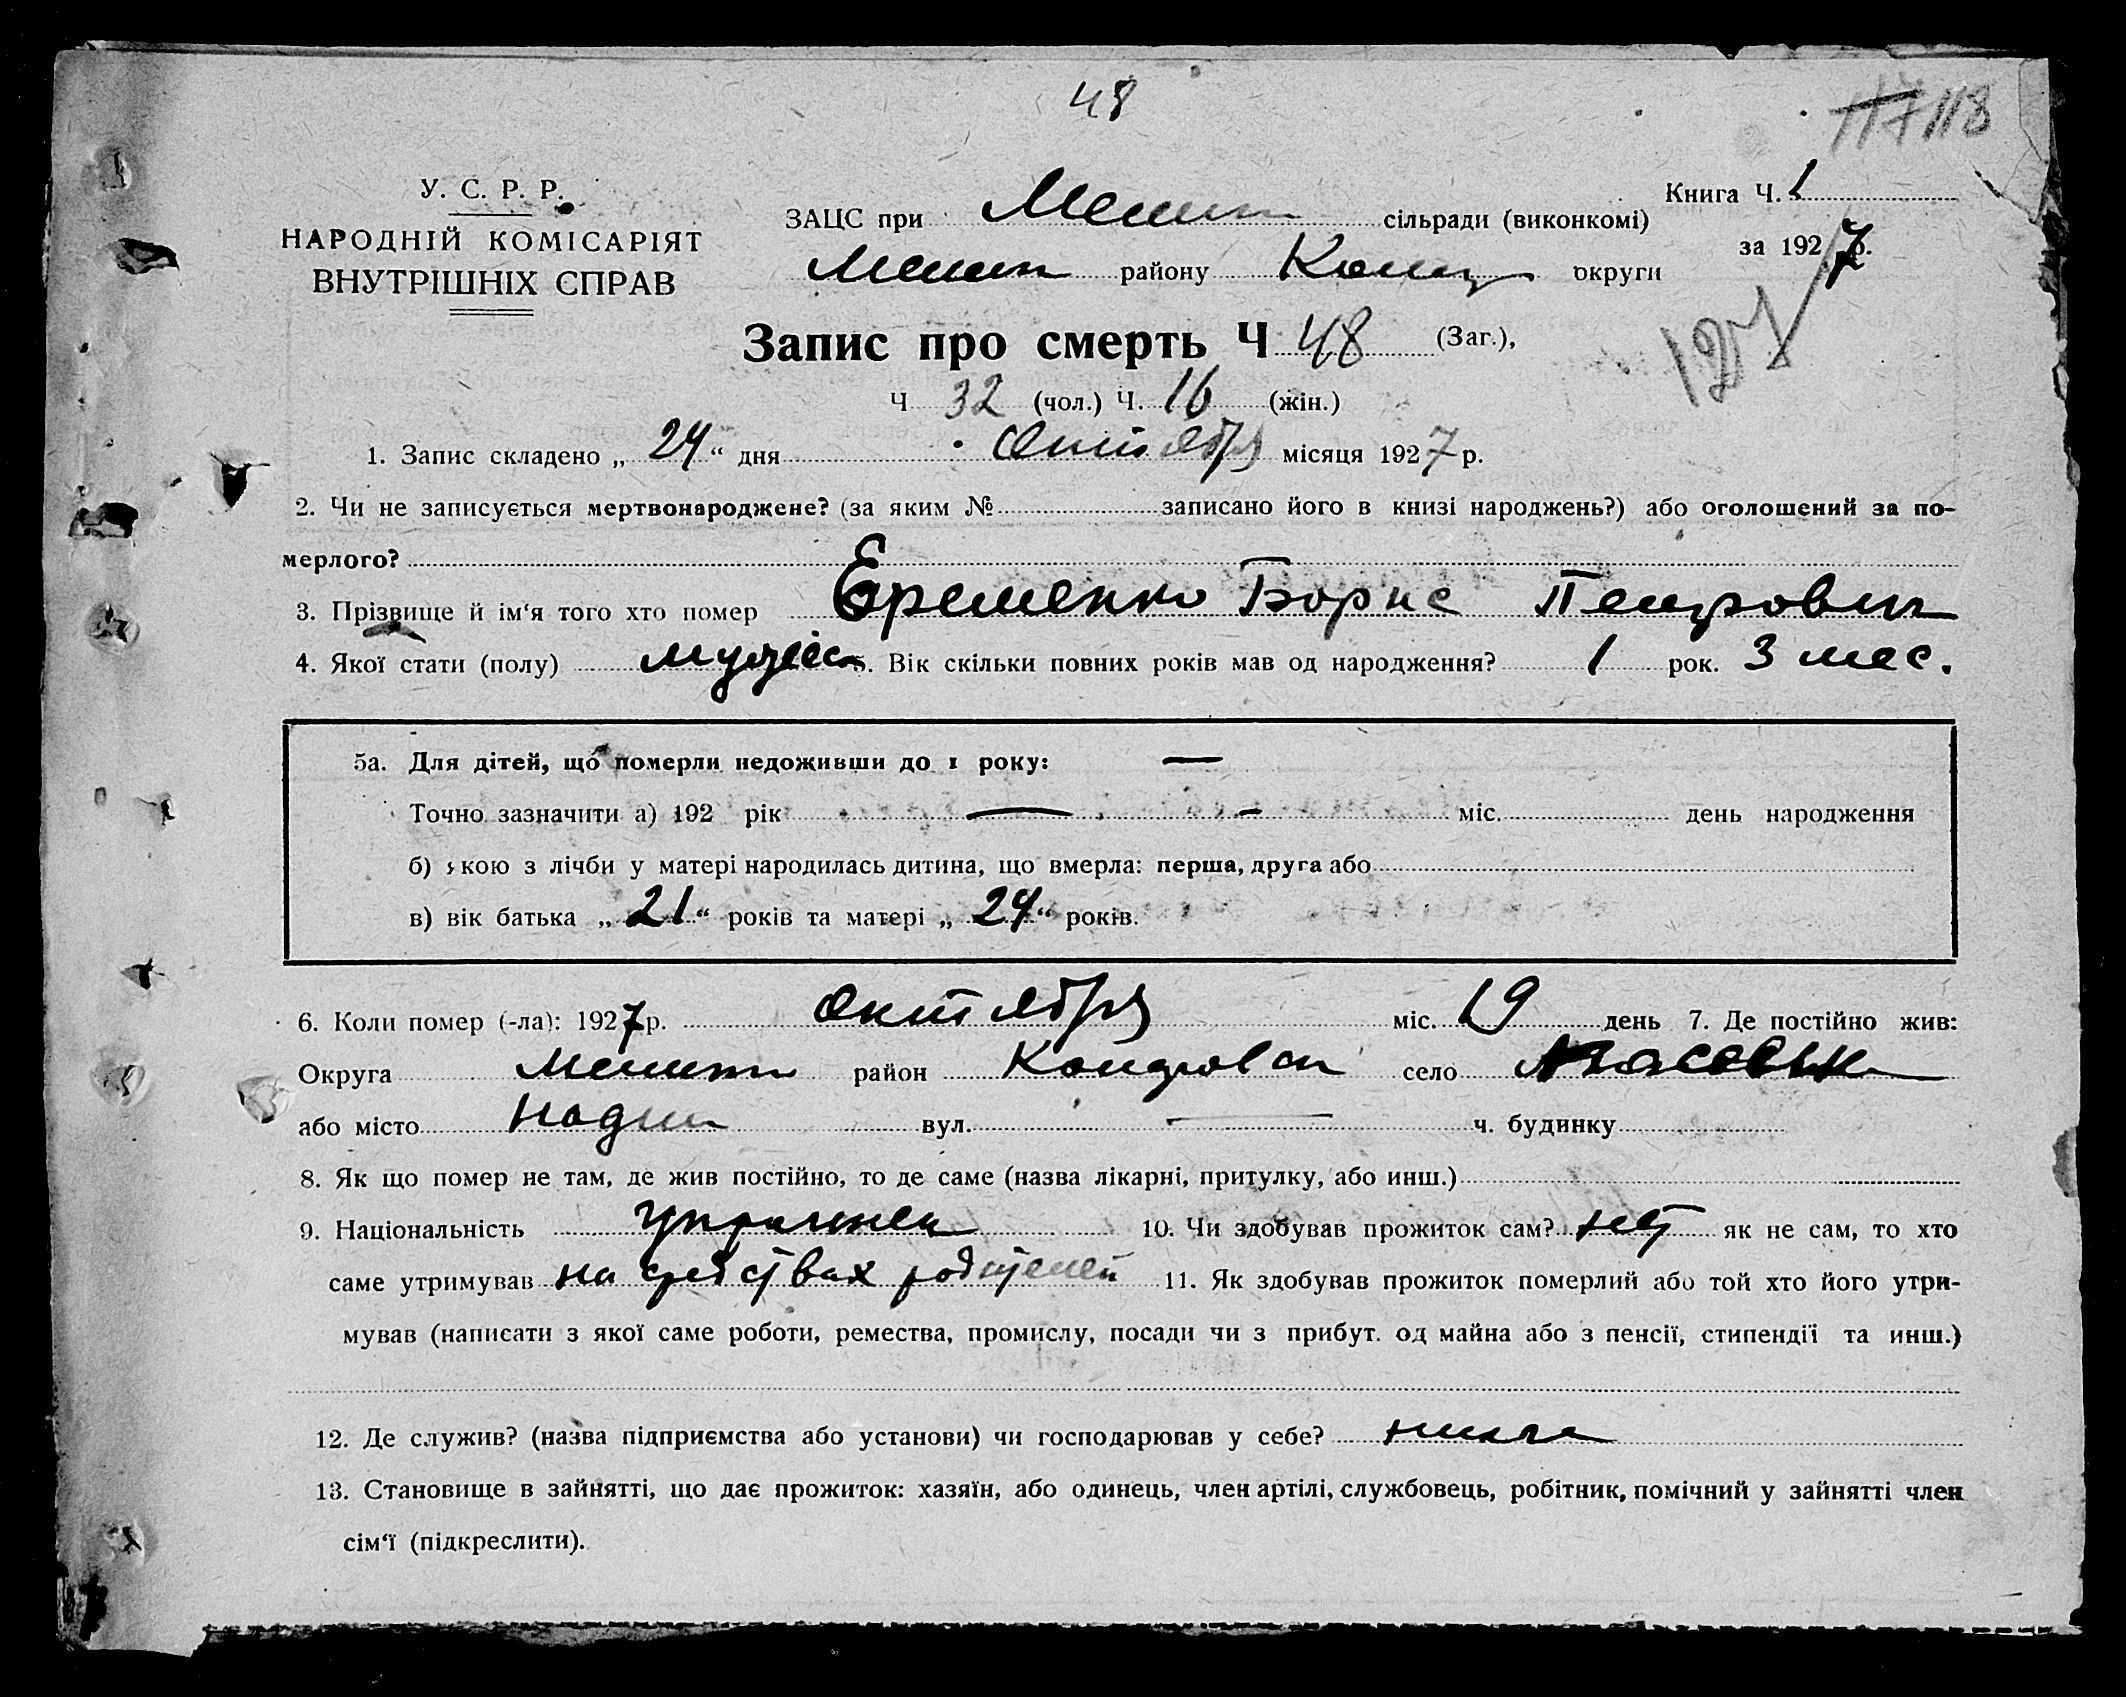 48
118
У. С. Р. Р.
НАРОДНІЙ КОМІСАРІЯТ
ВНУТРІШНІХ СПРАВ
Книга Ч. 1
за 1927 р.
ЗАЦС при сільради (виконкомі)
району округи
127
Запис про смерть Ч 48 (Заг.),
Ч 32 (чол.) Ч. 16 (жін.)
1. Запис складено „ 24 “ дня Октября місяця 1927 р.
2. Чи не записується мертвонароджене? (за яким № записано його в книзі народжень?) або оголошений за по-
мерлого?
3. Прізвище й ім‘я того хто помер Еременко Борис Петрович
4. Якої стати (полу) 5. Вік скільки повних років мав од народження? 1 рок. 3 мес.
5а. Для дітей, що померли недоживши до 1 року: —
Точно зазначити а) 192 рік — - міс. день народження
б) якою з лічби у матері народилась дитина, що вмерла: перша, друга або
в) вік батька „ 21 “ років та матері „ 24 “ років.
6. Коли помер (-ла): 1927 р. Октября міс. 19 день 7. Де постійно жив:
Округа район село
або місто вул. — ч. будинку
8. Як що помер не там, де жив постійно, то де саме (назва лікарні, притулку, або инш.)
9. Національність 10. Чи здобував прожиток сам? нет як не сам, то хто
саме утримував на средствах родителей 11. Як здобував прожиток померлий або той хто його утри-
мував (написати з якої саме роботи, ремества, промислу, посади чи з прибут. од майна або з пенсії, стипендії та инш.)
12. Де служив? (назва підприємства або установи) чи господарював у себе?
13. Становище в зайнятті, що дає прожиток: хазяїн, або одинець, член артілі, службовець, робітник, помічний у зайнятті член
сім‘ї (підкреслити).